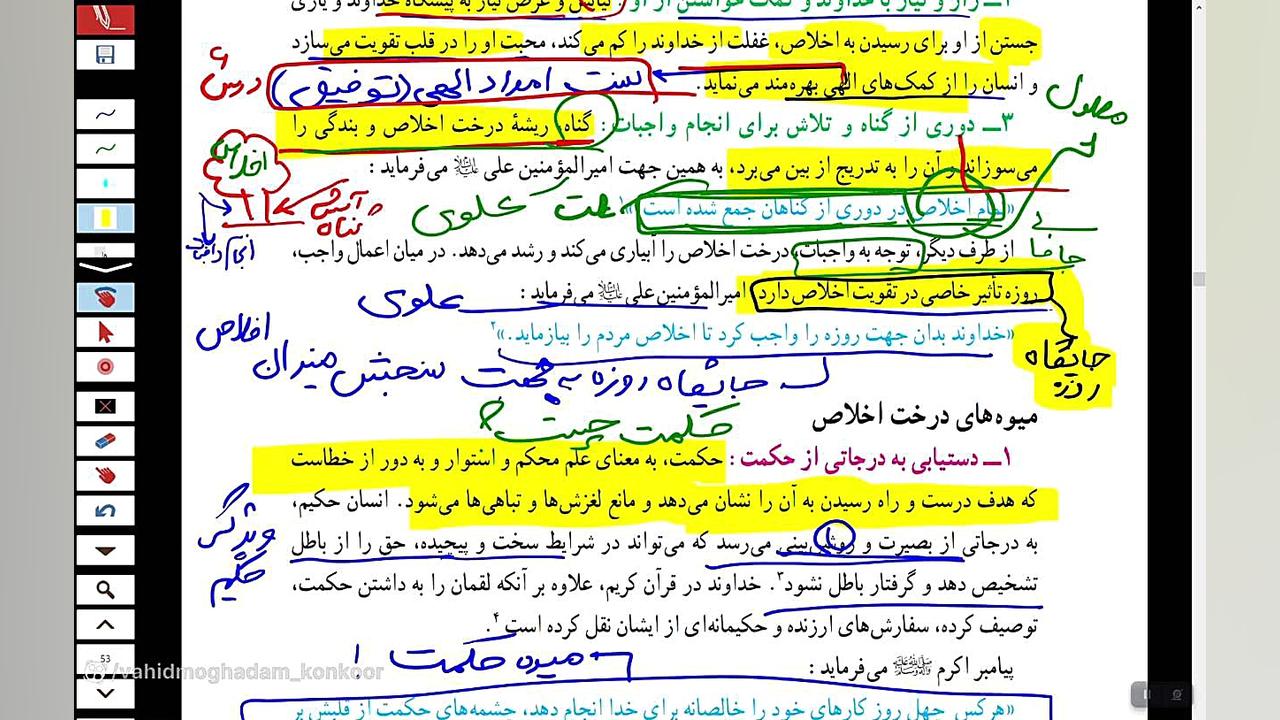 ۲ــ راز و نیاز با خداوند و کمک خواستن از او : نیایش و عرض نیاز به پیشگاه خداوند و یاری
جستن از او برای رسیدن به اخلاص، غفلت از خداوند را کم می‌کند، محبت او را در قلب تقویت می‌سازد
و انسان را از کمک‌های الهی بهره‌مند می‌نماید.
سنت امداد الهی (توفیق)
درس ۶
معلول
۳ــ دوری از گناه و تلاش برای انجام واجبات : گناه، ریشهٔ درخت اخلاص و بندگی را
می‌سوزاند و آن را به تدریج از بین می‌برد، به همین جهت امیرالمؤمنین علی علیه‌السلام می‌فرماید :
اخلاص
«تمام اخلاص در دوری از گناهان جمع شده است»۱
علت
علوی
آتش گناه
انجام واجبات
از طرف دیگر، توجه به واجبات، درخت اخلاص را آبیاری می‌کند و رشد می‌دهد. در میان اعمال واجب،
روزه تأثیر خاصی در تقویت اخلاص دارد. امیرالمؤمنین علی علیه‌السلام می‌فرماید :
علوی
«خداوند بدان جهت روزه را واجب کرد تا اخلاص مردم را بیازماید.»۲
جایگاه روزه
جایگاه روزه به جهت سنجش میزان اخلاص
میوه‌های درخت اخلاص
حکمت چیست؟
۱ــ دستیابی به درجاتی از حکمت : حکمت، به معنای علم محکم و استوار و به دور از خطاست
که هدف درست و راه رسیدن به آن را نشان می‌دهد و مانع لغزش‌ها و تباهی‌ها می‌شود. انسان حکیم،
به درجاتی از بصیرت و روشن‌بینی می‌رسد که می‌تواند در شرایط سخت و پیچیده، حق را از باطل
ویژگی حکیم
تشخیص دهد و گرفتار باطل نشود۳. خداوند در قرآن کریم، علاوه بر آنکه لقمان را به داشتن حکمت،
توصیف کرده، سفارش‌های ارزنده و حکیمانه‌ای از ایشان نقل کرده است۴.
پیامبر اکرم صلی‌الله‌علیه‌وآله می‌فرماید :
میوه حکمت
«هرکس چهل روز کارهای خود را خالصانه برای خدا انجام دهد، چشمه‌های حکمت از قلبش بر
53
/vahidmoghadam_konkoor